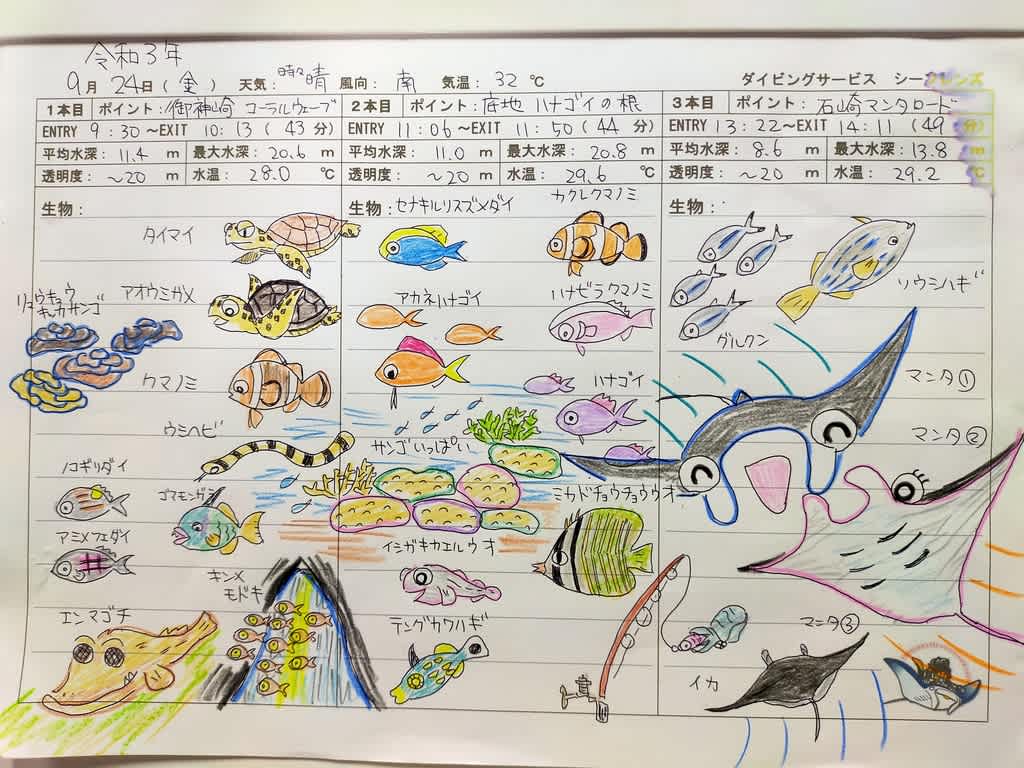 令和3年
9月 24日 (金) 天気: 時々晴 風向: 南 気温: 32 ℃ ダイビングサービス シーフレンズ
1本目 ポイント: 御神崎 コーラルウェーブ
ENTRY 9:30~EXIT 10:13 (43 分)
平均水深: 11.4 m 最大水深: 20.6 m
透明度: ~20 m 水温: 28.0 ℃
生物:
タイマイ
アオウミガメ
リュウキュウ
キッカサンゴ
クマノミ
ウミヘビ
ノコギリダイ
ゴマモンガラ
アミメフエダイ
キンメ
モドキ
エンマゴチ
2本目 ポイント: 底地 ハナゴイの根
ENTRY 11:06~EXIT 11:50 (44 分)
平均水深: 11.0 m 最大水深: 20.8 m
透明度: ~20 m 水温: 29.6 ℃
生物: セナキルリスズメダイ
カクレクマノミ
アカネハナゴイ
ハナビラクマノミ
ハナゴイ
サンゴいっぱい
ミカドチョウチョウウオ
イシガキカエルウオ
テングカワハギ
3本目 ポイント: 石崎マンタロード
ENTRY 13:22~EXIT 14:11 (49 分)
平均水深: 8.6 m 最大水深: 13.8 m
透明度: ~20 m 水温: 29.2 ℃
生物:
ソウシハギ
グルクン
マンタ①
マンタ②
マンタ③
イカ